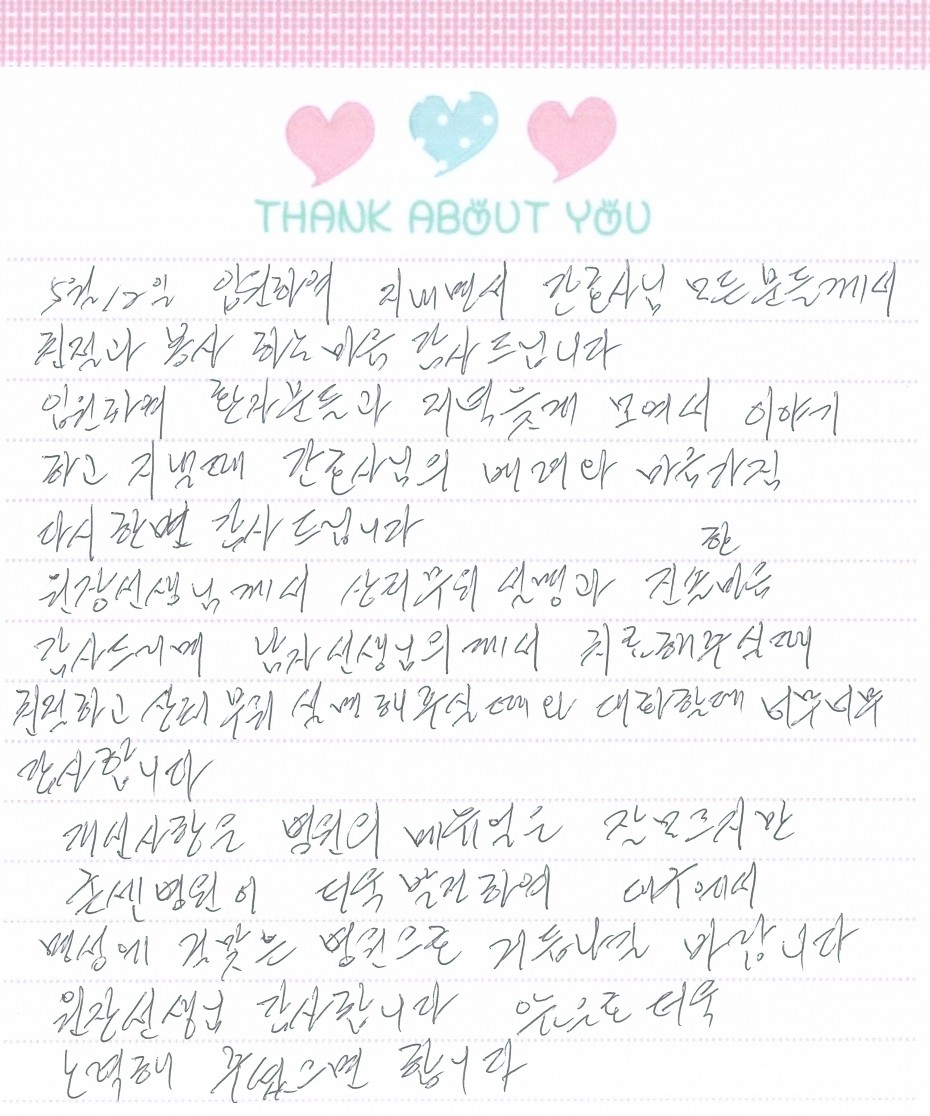 THANK ABOUT YOU
5월 12일 입원하여 지내면서 간호사님 모든분들께서
친절과 봉사 하는 마음 감사드립니다
입원하여 환자분들과 저녁늦게 모여서 이야기
하고 지낼때 간호사님의 배려와 마음가짐
다시한면 감사드립니다
한
원장선생님께서 상처부위 설명과 진솔마음
감사드리며 남자선생님의께서 치료해주실때
친절하고 상처부위 설명해주실때와 대화할때 너무너무
감사합니다
개선사항은 병원의 메뉴얼은 잘모르지만
존센병원이 더욱발전하여 대구에서
명성에 걸맞는 병원으로 거듭나길 바랍니다
원장선생님 감사합니다 앞으로 더욱
노력해 주셨으면 합니다